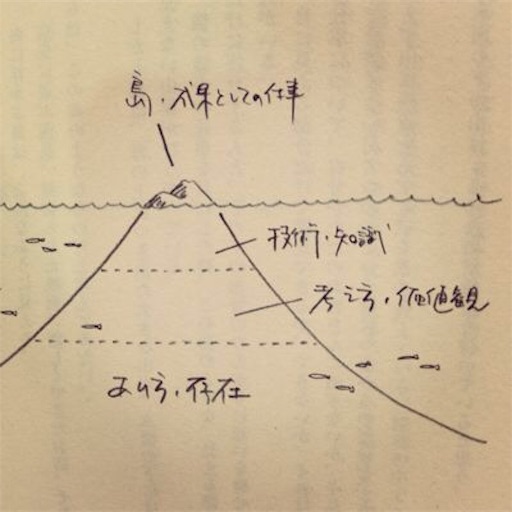 島・成果としての仕事
技術・知識
考え方・価値観
あり方・存在